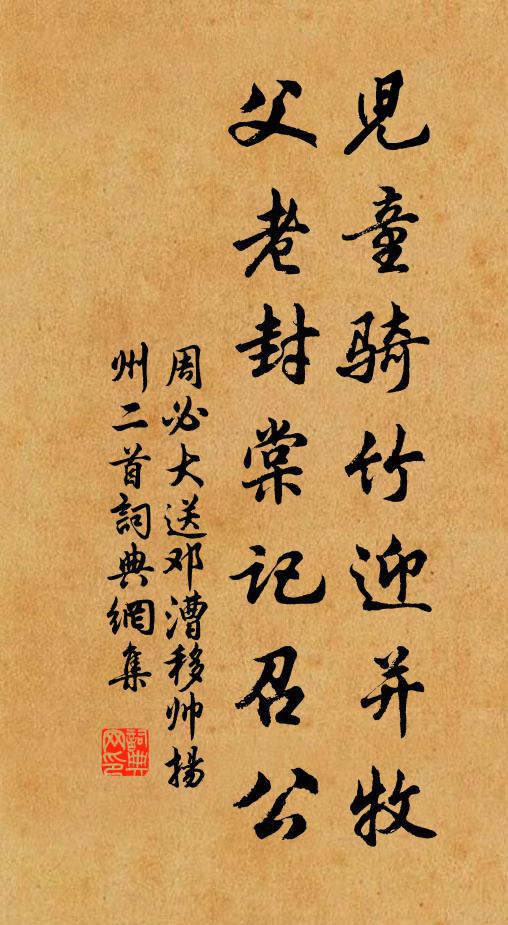 兒童骑竹迎并牧
父老封棠记召公
周必大送邓漕移帅揚
州二首詞典網集
詞典网印